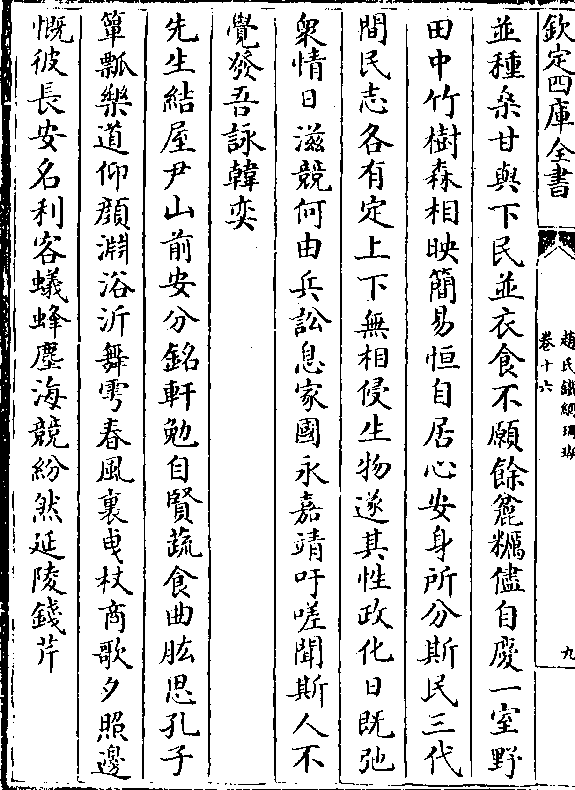 欽定四庫全書
趙氏鐵網珊瑚
卷十六
九
並種桑甘與下民並衣食不願餘麄糲儘自度一室野
田中竹樹森相映簡易恒自居心安身所分斯民三代
間民志各有定上下無相侵生物遂其性政化日既弛
衆情日滋競何由兵訟息家國永嘉靖吁嗟聞斯人不
覺發吾詠韓奕
先生結屋尹山前安分銘軒勉自賢蔬食曲肱思孔子
簞瓢樂道仰顔淵浴沂舞雩春風裏曳杖商歌夕照邊
慨彼長安名利客蟻蜂塵海競紛然延陵錢芹